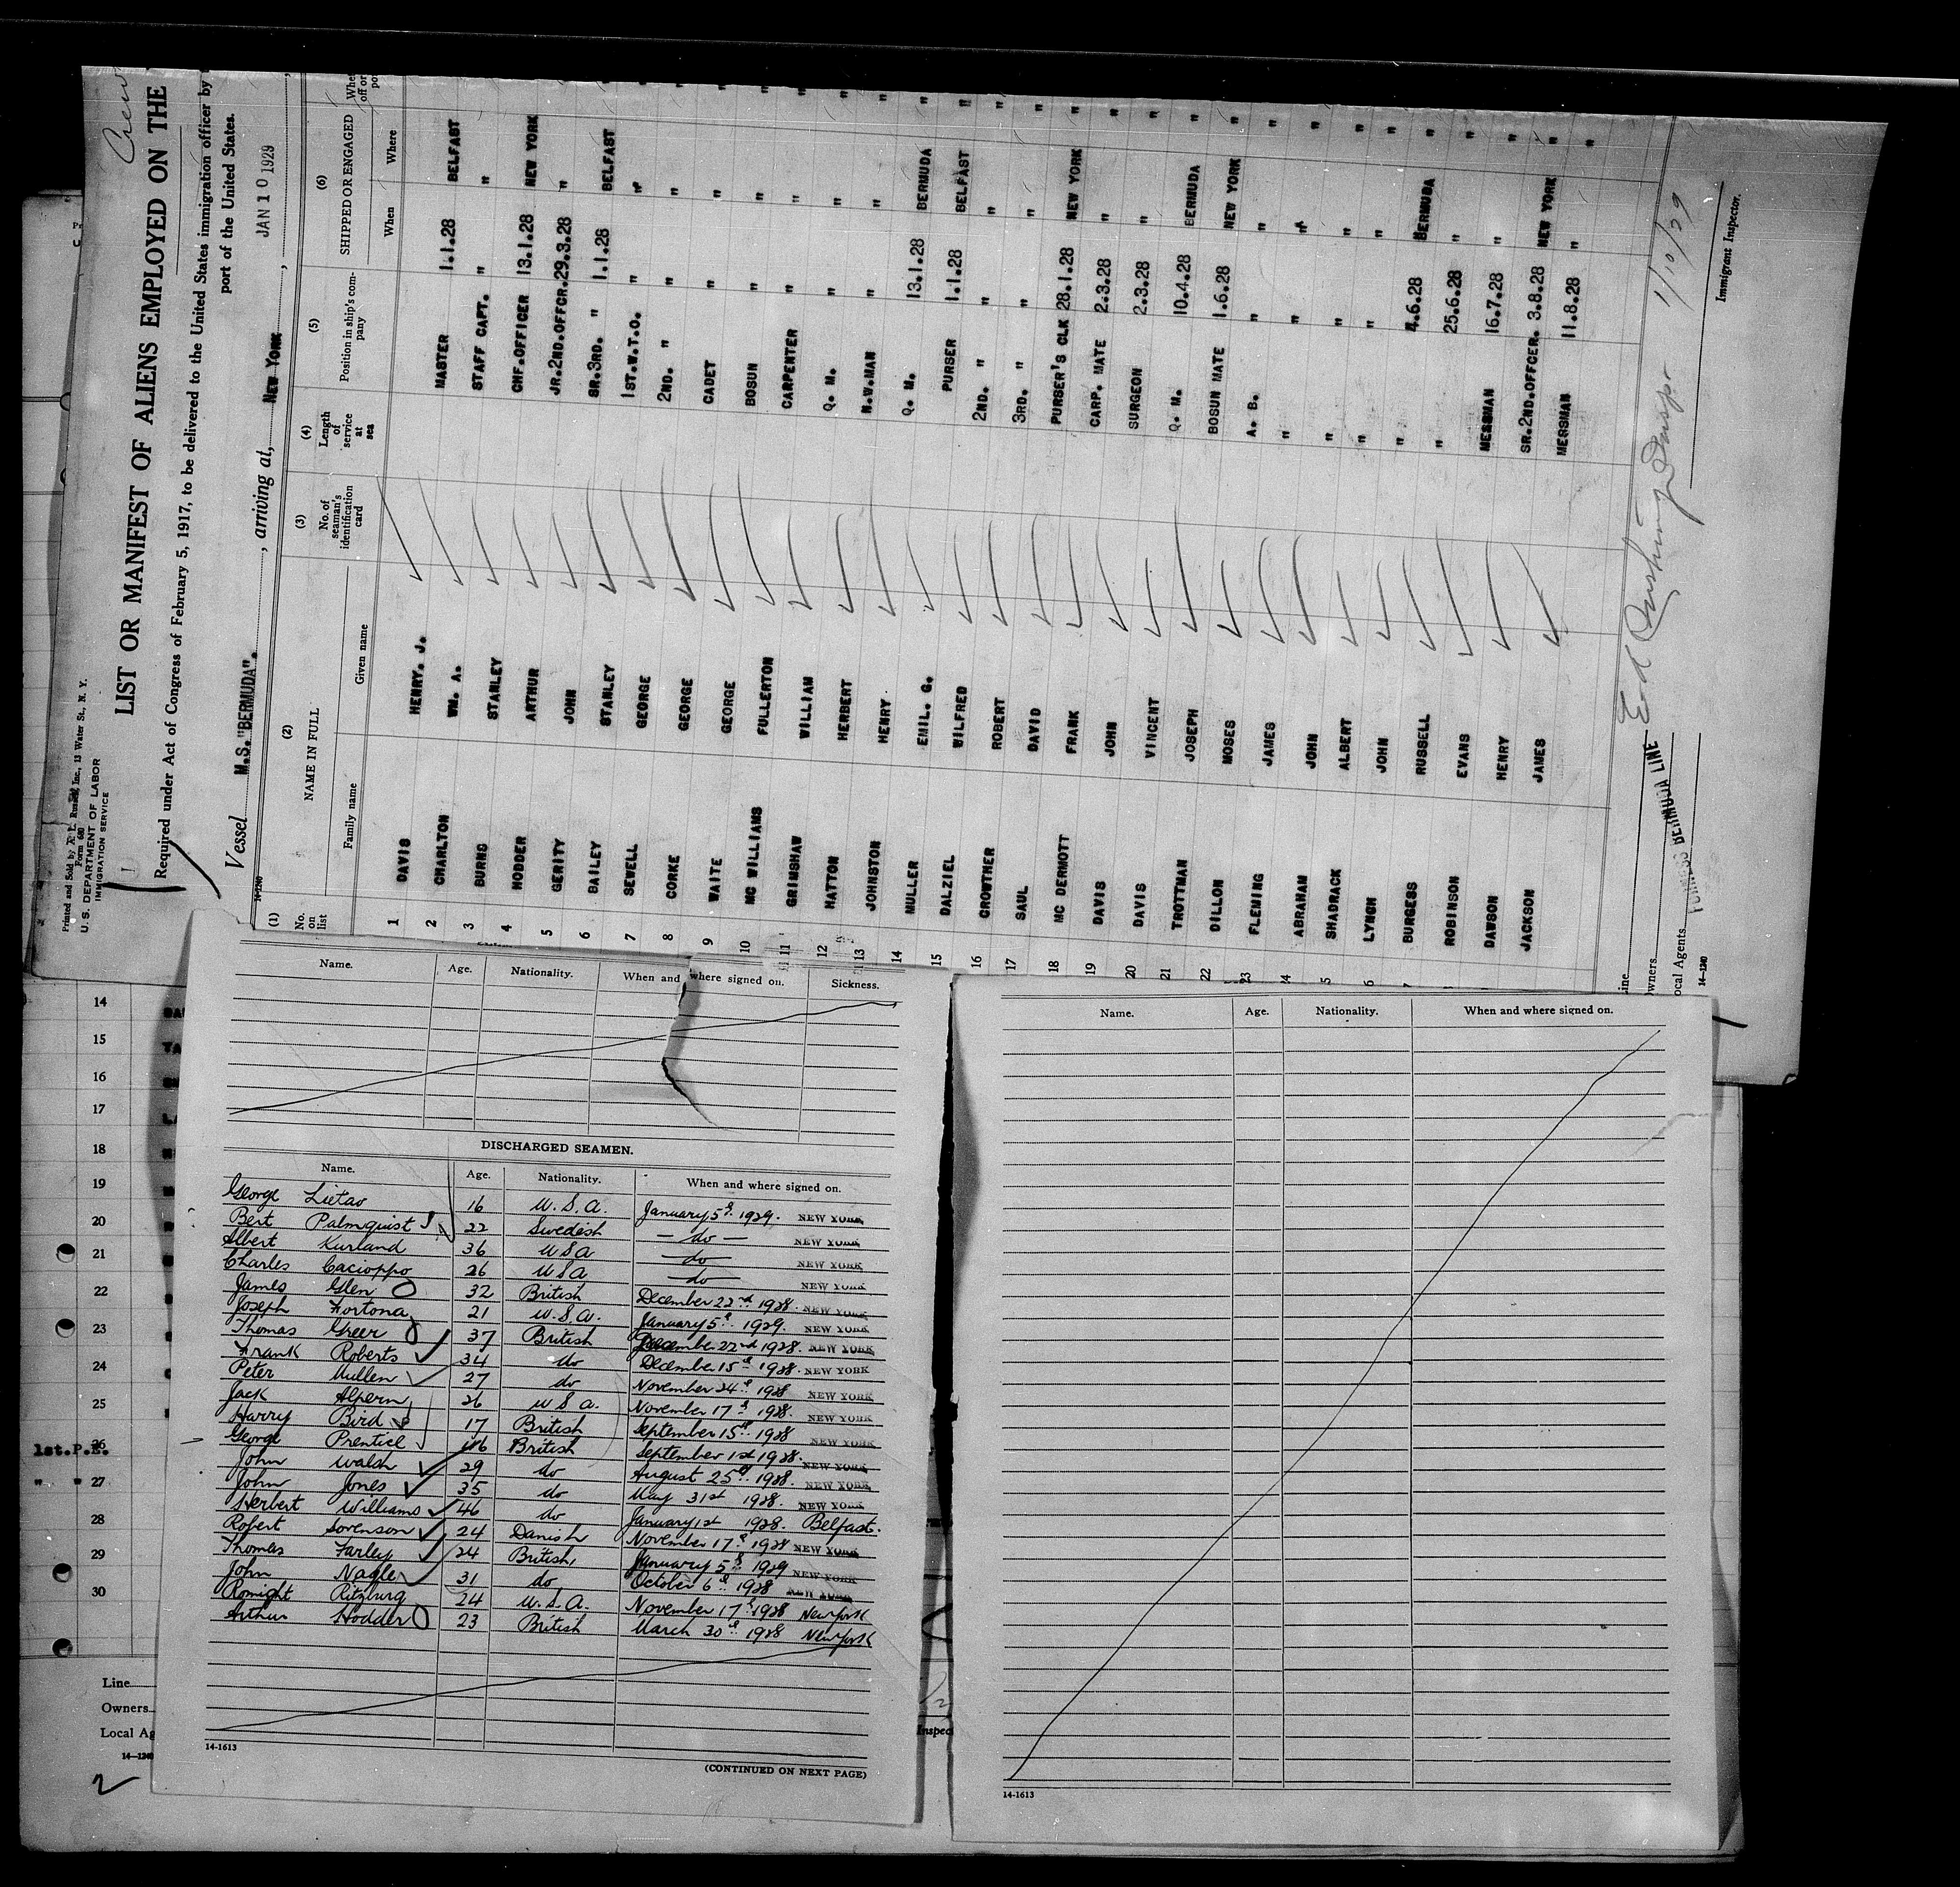 Crew
Printed and Sold by A. E. Russell, Inc., 13 Water St., N. Y.
Form 680
U. S. DEPARTMENT OF LABOR
IMMIGRATION SERVICE
LIST OR MANIFEST OF ALIENS EMPLOYED ON THE
Required under Act of Congress of February 5, 1917, to be delivered to the United States immigration officer by
port of the United States.
Vessel M.S. "BERMUDA". , arriving at, NEW YORK , JAN 10 1929
14-1240
(1) (2) (3) (4) (5) (6)
No. on list NAME IN FULL No. of seaman's identification card Length of service at sea Position in ship's company SHIPPED OR ENGAGED
Family name Given name When Where
1 DAVIS HENRY. J. MASTER 1.1.28 BELFAST
2 CHARLTON WM. A. STAFF CAPT. " "
3 BURNS STANLEY CHF.OFFICER 13.1.28 NEW YORK
4 HODDER ARTHUR JR.2ND.OFFCR. 29.3.28 "
5 GERITY JOHN SR.3RD. " 1.1.28 BELFAST
6 BAILEY STANLEY 1ST.W.T.O. " "
7 SEWELL GEORGE 2ND. " " "
8 CORKE GEORGE CADET " "
9 WAITE GEORGE BOSUN " "
10 MC WILLIAMS FULLERTON CARPENTER " "
11 GRIMSHAW WILLIAM Q. M. " "
12 HATTON HERBERT N.W.MAN " "
13 JOHNSTON HENRY Q. M. 13.1.28 BERMUDA
14 MULLER EMIL. G. PURSER 1.1.28 BELFAST
15 DALZIEL WILFRED 2ND. " " "
16 CROWTHER ROBERT 3RD. " " "
17 SAUL DAVID PURSER'S CLK 28.1.28 NEW YORK
18 MC DERMOTT FRANK CARP. MATE 2.3.28 "
19 DAVIS JOHN SURGEON 2.3.28 "
20 DAVIS VINCENT Q. M. 10.4.28 BERMUDA
21 TROTTMAN JOSEPH BOSUN MATE 1.6.28 NEW YORK
22 DILLON MOSES A. B. " "
23 FLEMING JAMES " " "
24 ABRAHAM JOHN " " "
5 SHADRACK ALBERT " " "
6 LYNCH JOHN " 4.6.28 BERMUDA
BURGESS RUSSELL " 25.6.28 "
ROBINSON EVANS MESSMAN 16.7.28 "
DAWSON HENRY SR.2ND.OFFCER. 3.8.28 NEW YORK
JACKSON JAMES MESSMAN 11.8.28 "
1/10/29
Immigrant Inspector.
Line
Owners
Local Agents FURNESS BERMUDA LINE
14-1240
Name. Age. Nationality. When and where signed on. Sickness.
DISCHARGED SEAMEN.
Name. Age. Nationality. When and where signed on.
George Lietao 16 U.S.A. January 5th 1929. NEW YORK
Bert Palmquist 22 Swedish — do — NEW YORK
Albert Kurland 36 USA do NEW YORK
Charles Cacioppo 26 USA do NEW YORK
James Glen 32 British December 22nd 1928. NEW YORK
Joseph Fortona 21 U.S.A. January 5th 1929. NEW YORK
Thomas Greer 37 British December 22nd 1928. NEW YORK
Frank Roberts 34 do December 15th 1928. NEW YORK
Peter Mullen 27 do November 24th 1928 NEW YORK
Jack Alpern 26 USA. November 17th 1928. NEW YORK
Harry Bird 17 British September 15th 1928 NEW YORK
George Prentiel 16 British September 1st 1928. NEW YORK
John Walsh 29 do August 25th 1928. NEW YORK
John Jones 35 do May 31st 1928. NEW YORK
Herbert Williams 46 do January 1st 1928. Belfast.
Robert Sorenson 24 Danish November 17th 1928 NEW YORK
Thomas Farley 24 British January 5th 1929 NEW YORK
John Nagle 31 do October 6th 1928 NEW YORK
Romight Ritzburg 24 U.S.A. November 17th 1928 New York
Arthur Hodder 23 British March 30th 1928 New York
14-1613
(CONTINUED ON NEXT PAGE)
Name. Age. Nationality. When and where signed on.
14-1613
14
15
16
17
18
19
20
21
22
23
24
25
1st.P. 26
" " 27
28
29
30
Line
Owners
Local Ag
14-1240
2
Inspec